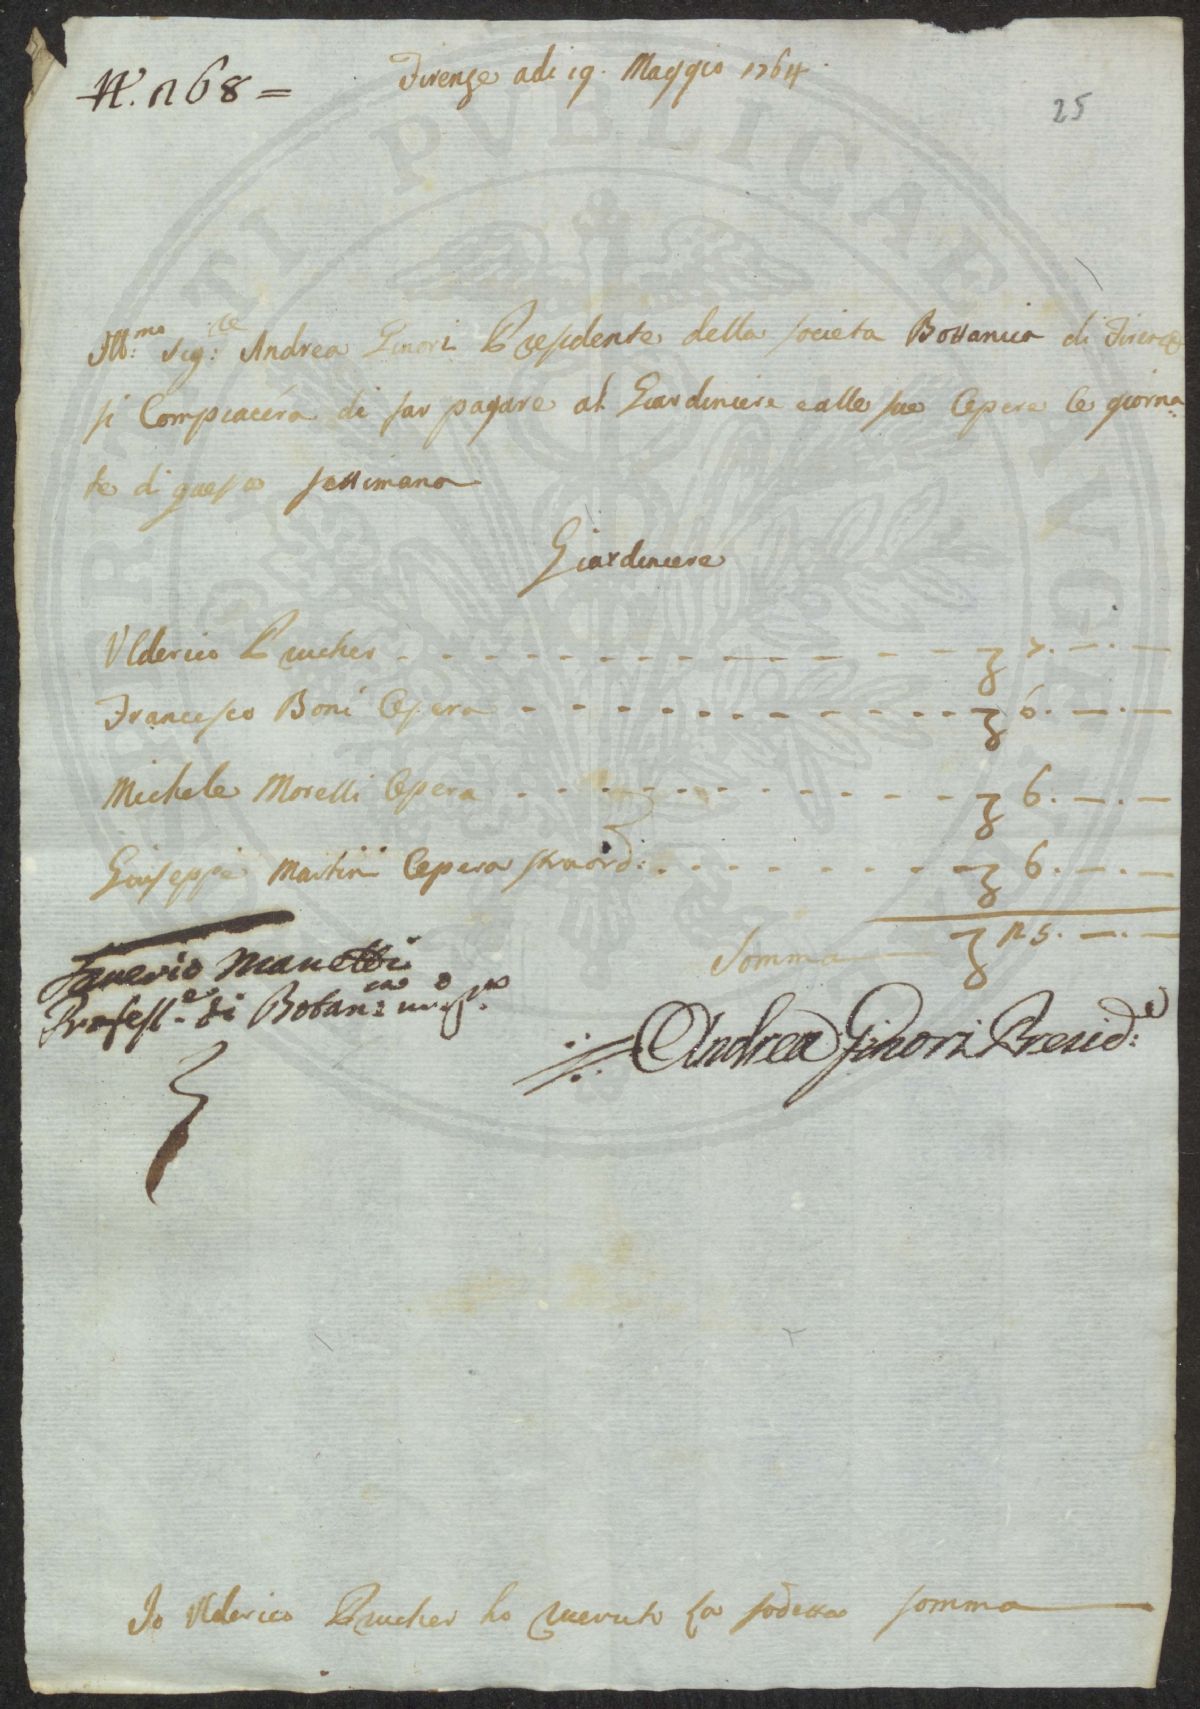 N. 168 =
Firenze adi 19. Maggio 1764.
25
Ill:mo Sig:re Andrea Ginori Presidente della societa Bottanica di Firenze
si Compiacéra di far pagare al Giardiniere e alle sue Opere le giorna=
te di questa settimana
Giardiniere
Ulderico Prucher - - - - - - - - - - - - 7. —.—
Francesco Boni Opera - - - - - - - - - - - 6. —.—
Michele Morelli Opera - - - - - - - - - - 6. —.—
Giuseppe Martini Opera straord: - - - - - - - 6. —.—
Somma — 25. —.—
Saverio Manetti
Profess:e di Botan:ca
Andrea Ginori Presid:e
Io Ulderico Prucher ho riceuto la sodetta somma
PVBLICAE